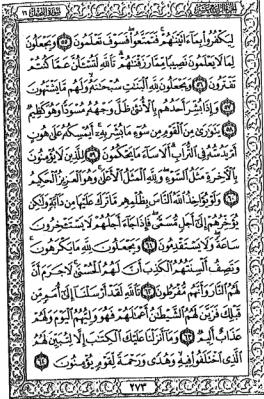 لِيَكْفُرُوا۟ بِمَآ ءَاتَيْنَٰهُمْ ۚ فَتَمَتَّعُوا۟ ۖ فَسَوْفَ تَعْلَمُونَ ٥٥ وَيَجْعَلُونَ
لِمَا لَا يَعْلَمُونَ نَصِيبًا مِّمَّا رَزَقْنَٰهُمْ ۗ تَٱللَّهِ لَتُسْـَٔلُنَّ عَمَّا كُنتُمْ
تَفْتَرُونَ ٥٦ وَيَجْعَلُونَ لِلَّهِ ٱلْبَنَٰتِ سُبْحَٰنَهُۥ ۙ وَلَهُم مَّا يَشْتَهُونَ
٥٧ وَإِذَا بُشِّرَ أَحَدُهُم بِٱلْأُنثَىٰ ظَلَّ وَجْهُهُۥ مُسْوَدًّا وَهُوَ كَظِيمٌ
٥٨ يَتَوَٰرَىٰ مِنَ ٱلْقَوْمِ مِن سُوٓءِ مَا بُشِّرَ بِهِۦٓ ۚ أَيُمْسِكُهُۥ عَلَىٰ هُونٍ
أَمْ يَدُسُّهُۥ فِى ٱلتُّرَابِ ۗ أَلَا سَآءَ مَا يَحْكُمُونَ ٥٩ لِلَّذِينَ لَا يُؤْمِنُونَ
بِٱلْءَاخِرَةِ مَثَلُ ٱلسَّوْءِ ۖ وَلِلَّهِ ٱلْمَثَلُ ٱلْأَعْلَىٰ ۚ وَهُوَ ٱلْعَزِيزُ ٱلْحَكِيمُ
٦٠ وَلَوْ يُؤَاخِذُ ٱللَّهُ ٱلنَّاسَ بِظُلْمِهِم مَّا تَرَكَ عَلَيْهَا مِن دَآبَّةٍ وَلَٰكِن
يُؤَخِّرُهُمْ إِلَىٰٓ أَجَلٍ مُّسَمًّى ۖ فَإِذَا جَآءَ أَجَلُهُمْ لَا يَسْتَـْٔخِرُونَ
سَاعَةً ۖ وَلَا يَسْتَقْدِمُونَ ٦١ وَيَجْعَلُونَ لِلَّهِ مَا يَكْرَهُونَ
وَتَصِفُ أَلْسِنَتُهُمُ ٱلْكَذِبَ أَنَّ لَهُمُ ٱلْحُسْنَىٰ ۖ لَا جَرَمَ أَنَّ
لَهُمُ ٱلنَّارَ وَأَنَّهُم مُّفْرَطُونَ ٦٢ تَٱللَّهِ لَقَدْ أَرْسَلْنَآ إِلَىٰٓ أُمَمٍ مِّن
قَبْلِكَ فَزَيَّنَ لَهُمُ ٱلشَّيْطَٰنُ أَعْمَٰلَهُمْ فَهُوَ وَلِيُّهُمُ ٱلْيَوْمَ وَلَهُمْ
عَذَابٌ أَلِيمٌ ٦٣ وَمَآ أَنزَلْنَا عَلَيْكَ ٱلْكِتَٰبَ إِلَّا لِتُبَيِّنَ لَهُمُ
ٱلَّذِى ٱخْتَلَفُوا۟ فِيهِ ۙ وَهُدًى وَرَحْمَةً لِّقَوْمٍ يُؤْمِنُونَ ٦٤
٢٧٣